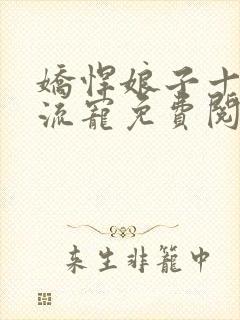 嬌悍娘子十
流寵免費閱
来生非籠中